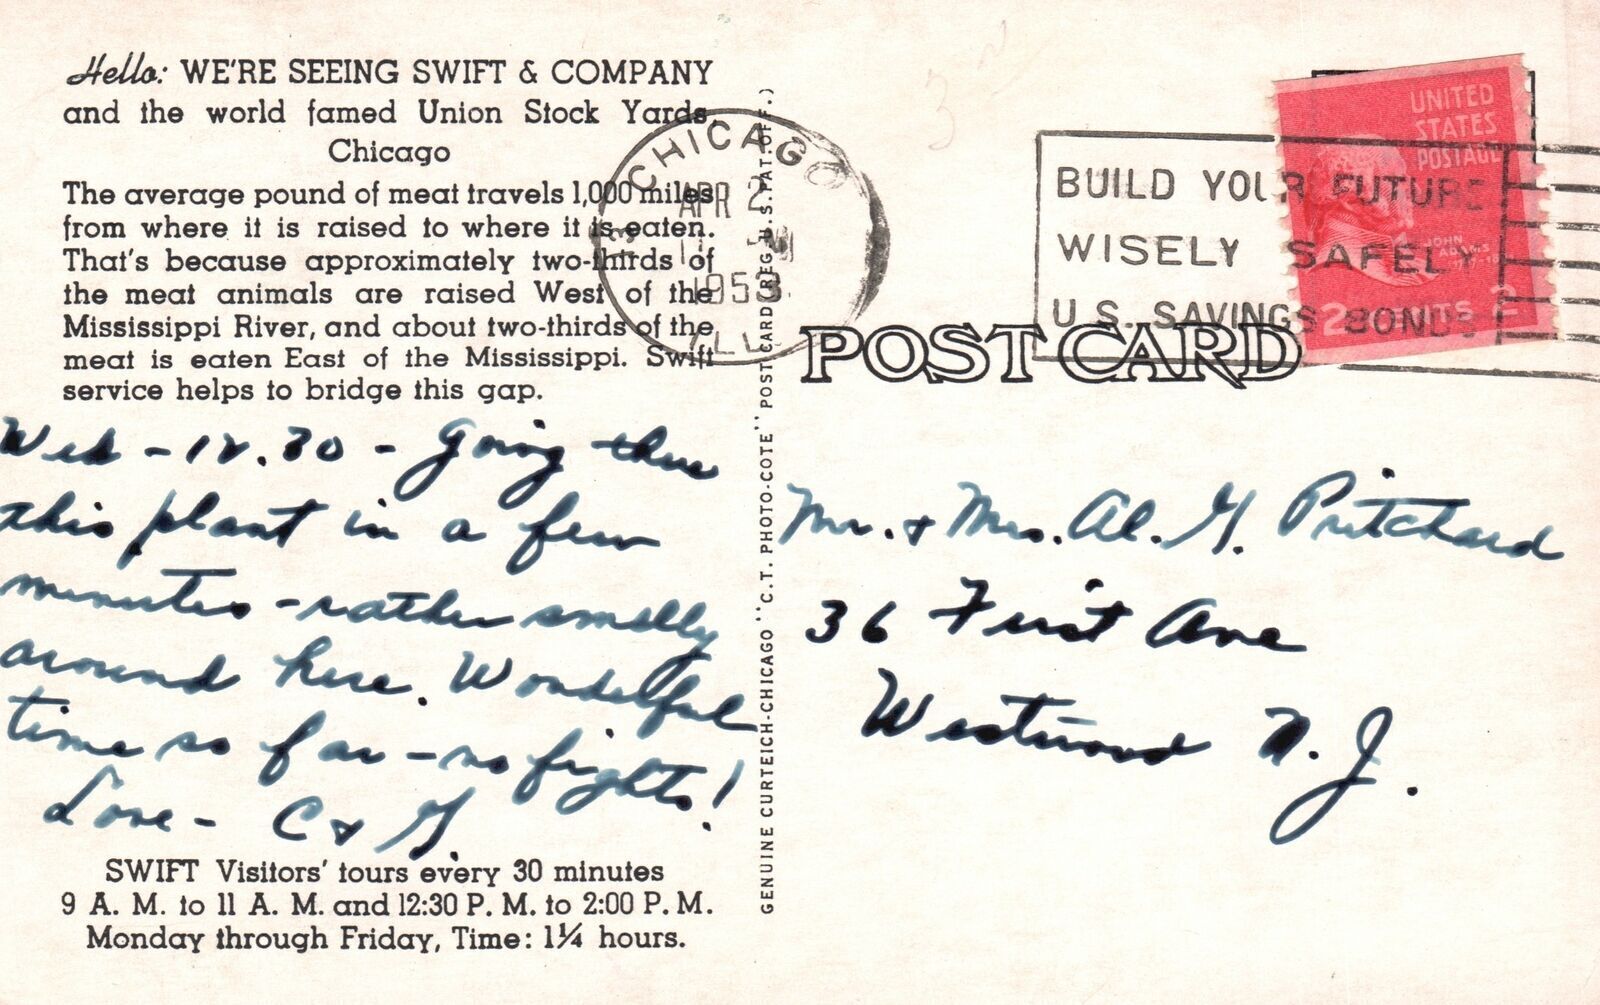 Hello: WE'RE SEEING SWIFT & COMPANY
and the world famed Union Stock Yards,
Chicago
The average pound of meat travels 1,000 miles
from where it is raised to where it is eaten.
That's because approximately two-thirds of
the meat animals are raised West of the
Mississippi River, and about two-thirds of the
meat is eaten East of the Mississippi. Swift
service helps to bridge this gap.
Wed - 12.30 - Going thru
this plant in a few
minutes - rather smelly
around here. Wonderful
time so far - no fights!
Love - C & G.
SWIFT Visitors' tours every 30 minutes
9 A. M. to 11 A. M. and 12:30 P. M. to 2:00 P. M.
Monday through Friday, Time: 1¼ hours.
GENUINE CURTEICH-CHICAGO "C.T. PHOTO-COTE" POST CARD REG. U.S. PAT. OFF.)
CHICAGO
APR 2
1953
ILL
3
BUILD YOUR FUTURE
WISELY SAFELY
U.S. SAVINGS BONDS
UNITED
STATES
POSTAGE
JOHN
ADAMS
2 CENTS 2
POST CARD
Mr. & Mrs. Al. G. Pritchard
36 First Ave
Westwood N. J.